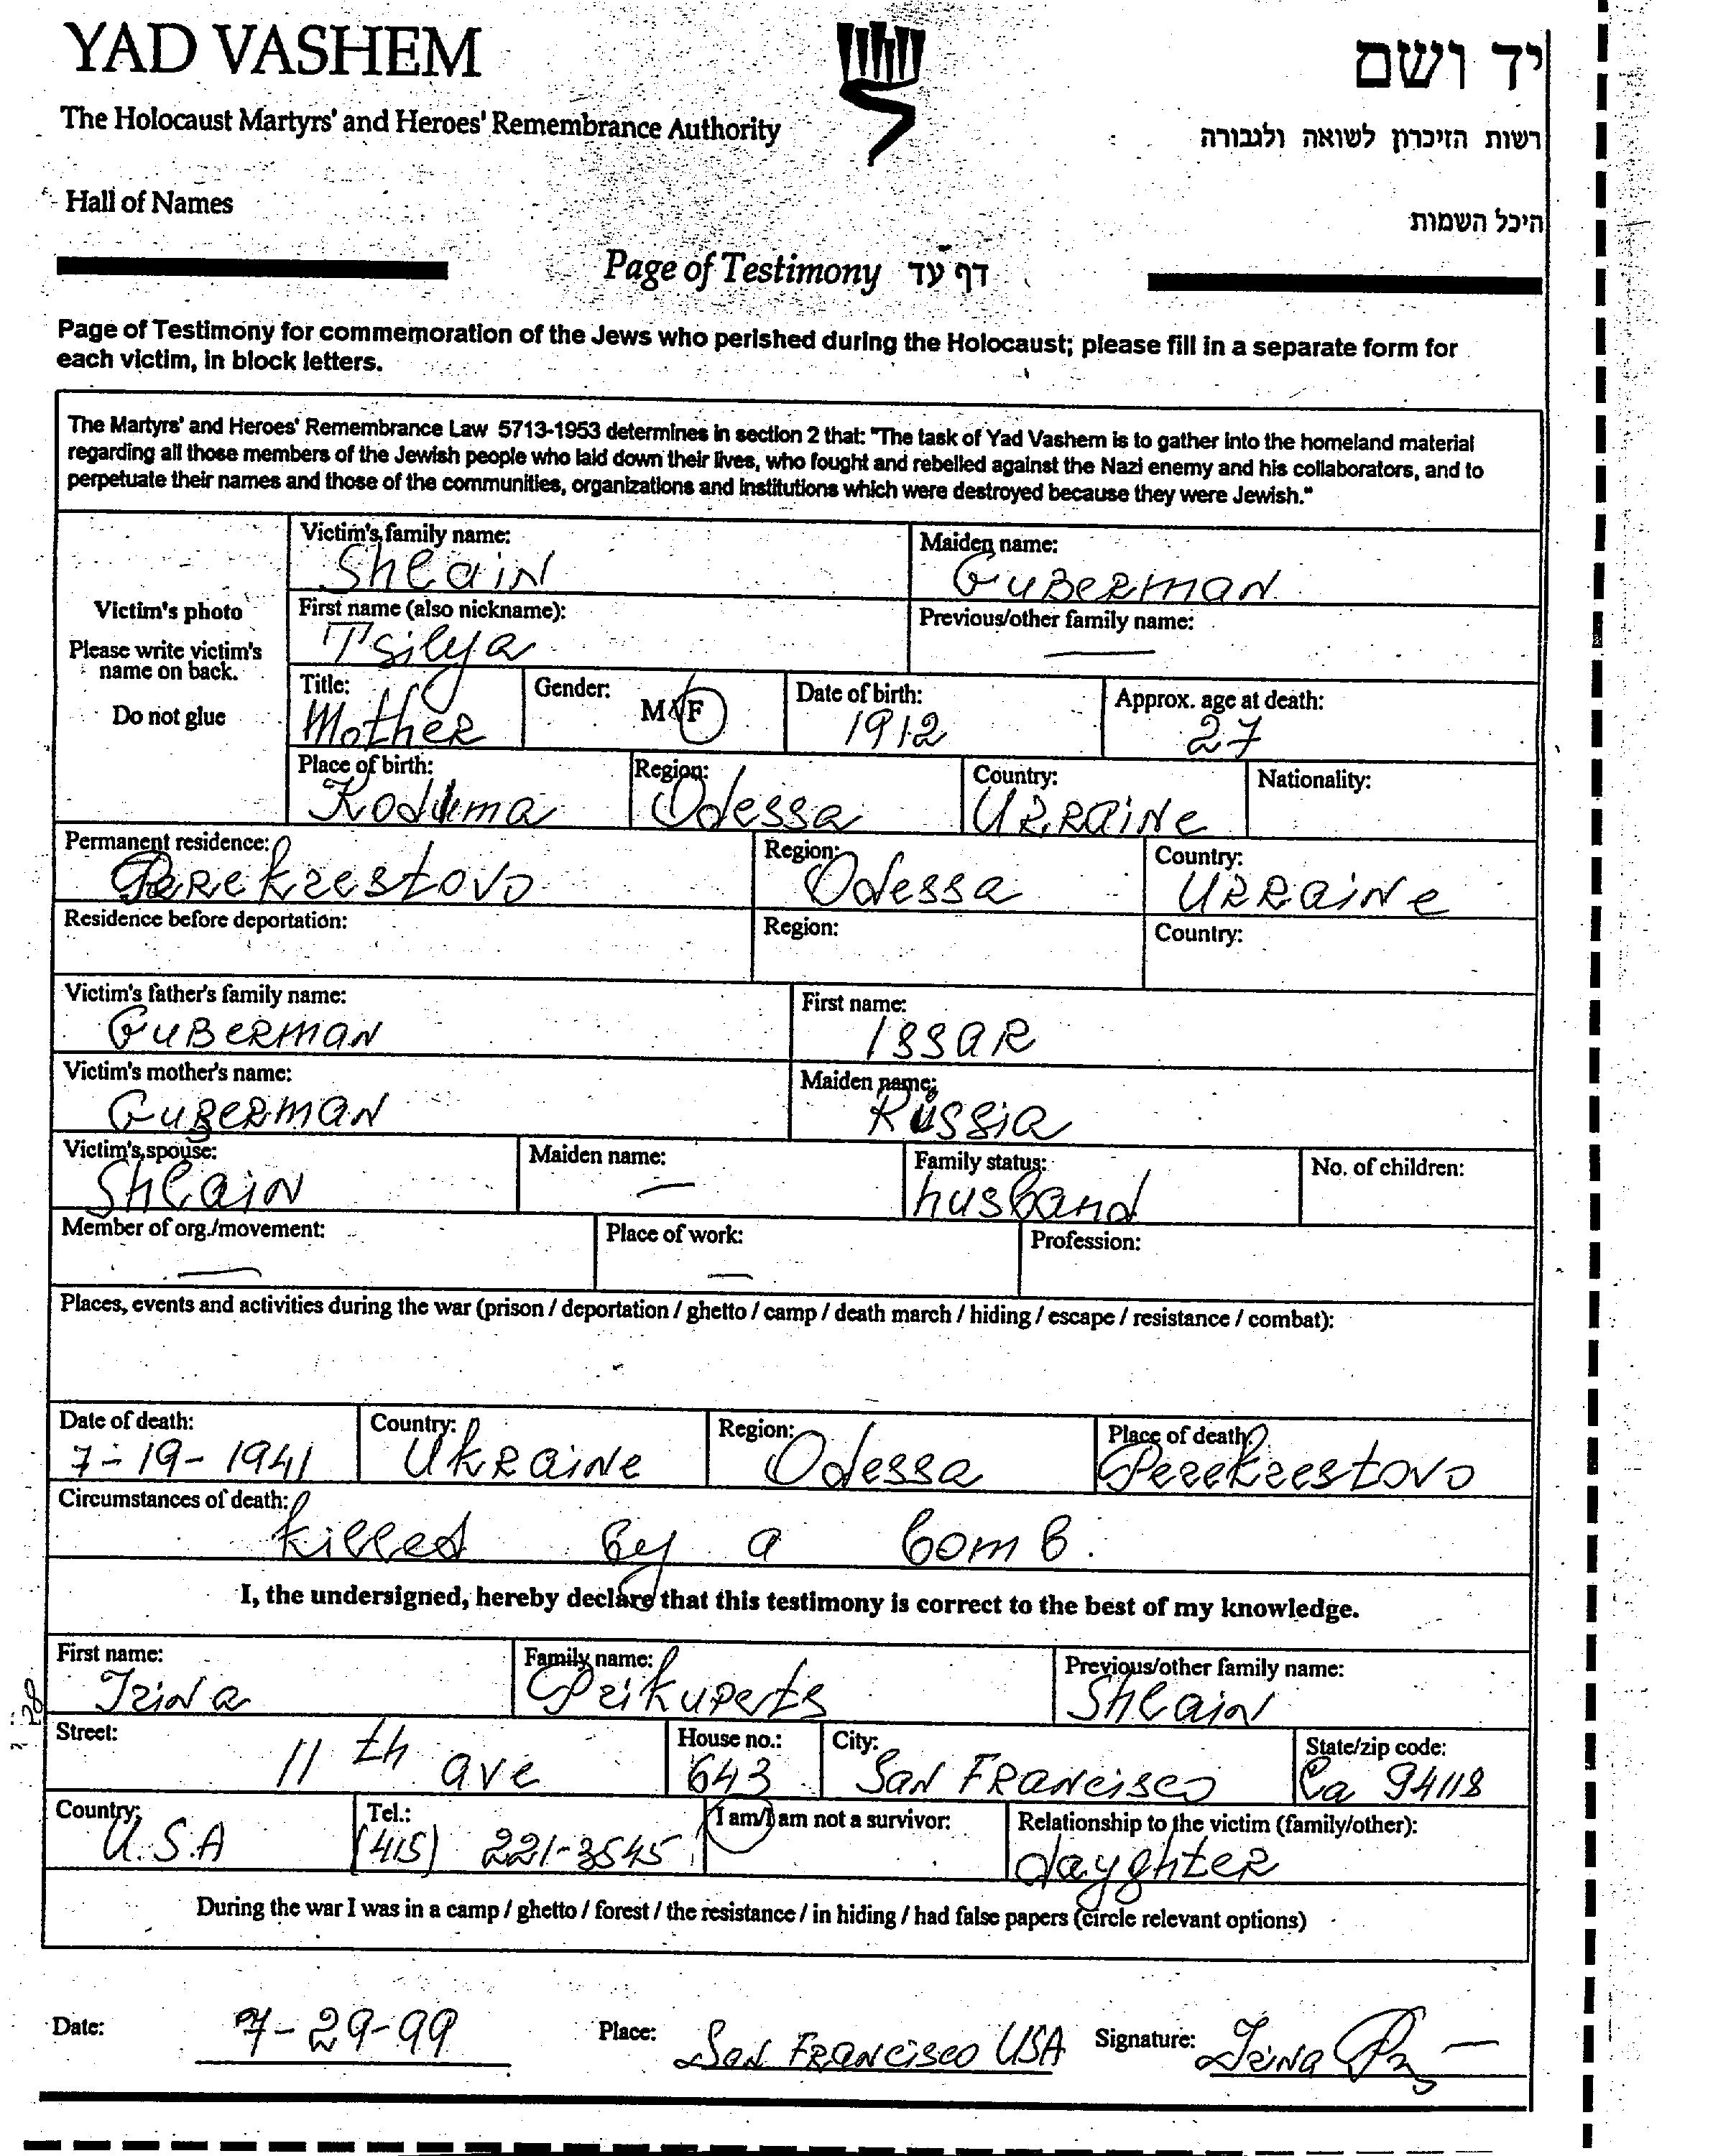 YAD VASHEM
יד ושם
The Holocaust Martyrs' and Heroes' Remembrance Authority
רשות הזיכרון לשואה ולגבורה
Hall of Names
היכל השמות
Page of Testimony דף עד
Page of Testimony for commemoration of the Jews who perished during the Holocaust; please fill in a separate form for
each victim, in block letters.
The Martyrs' and Heroes' Remembrance Law 5713-1953 determines in section 2 that: "The task of Yad Vashem is to gather into the homeland material
regarding all those members of the Jewish people who laid down their lives, who fought and rebelled against the Nazi enemy and his collaborators, and to
perpetuate their names and those of the communities, organizations and institutions which were destroyed because they were Jewish."
Victim's photo
Please write victim's
name on back.
Do not glue
Victim's family name: Maiden name:
Shlain Guberman
First name (also nickname): Previous/other family name:
Tsilya —
Title: Gender: M/F Date of birth: Approx. age at death:
Mother 1912 27
Place of birth: Region: Country: Nationality:
Kodima Odessa Ukraine
Permanent residence: Region: Country:
Perekrestovo Odessa Ukraine
Residence before deportation: Region: Country:
Victim's father's family name: First name:
Guberman Issar
Victim's mother's name: Maiden name:
Guberman Russia
Victim's spouse: Maiden name: Family status: No. of children:
Shlain — husband
Member of org./movement: Place of work: Profession:
— —
Places, events and activities during the war (prison / deportation / ghetto / camp / death march / hiding / escape / resistance / combat):
Date of death: Country: Region: Place of death:
7-19-1941 Ukraine Odessa Perekrestovo
Circumstances of death:
killed by a bomb.
I, the undersigned, hereby declare that this testimony is correct to the best of my knowledge.
First name: Family name: Previous/other family name:
Irina Prikuperts Shlain
Street: House no.: City: State/zip code:
11th ave 643 San Francisco Ca 94118
Country: Tel.: I am/I am not a survivor: Relationship to the victim (family/other):
U.S.A (415) 221-3545 dayghter
During the war I was in a camp / ghetto / forest / the resistance / in hiding / had false papers (circle relevant options)
Date: 7-29-99 Place: San Francisco USA Signature: Irina